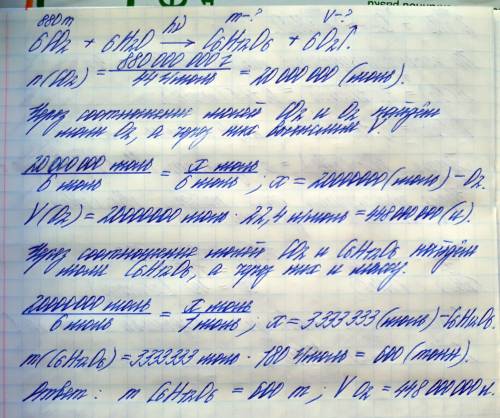 880 т hν m-? V-?
6CO2 + 6H2O → C6H12O6 + 6O2↑.
n(CO2) = 880 000 000 г / 44 г/моль = 20 000 000 (моль).
Через соотношение молей CO2 и O2 найдём
моли O2, а через них вычислим V.
20 000 000 моль / 6 моль = x моль / 6 моль ; x = 20000000 (моль) - O2.
V(O2) = 20000000 моль · 22,4 л/моль = 448 000 000 (л).
Через соотношение молей CO2 и C6H12O6 найдём
моли C6H12O6, а через них и массу.
20000000 моль / 6 моль = x моль / 1 моль ; x = 3333333 (моль) - C6H12O6
m(C6H12O6) = 3333333 моль · 180 г/моль = 600 (тонн).
Ответ: m C6H12O6 = 600 т ; V O2 = 448 000 000 л.